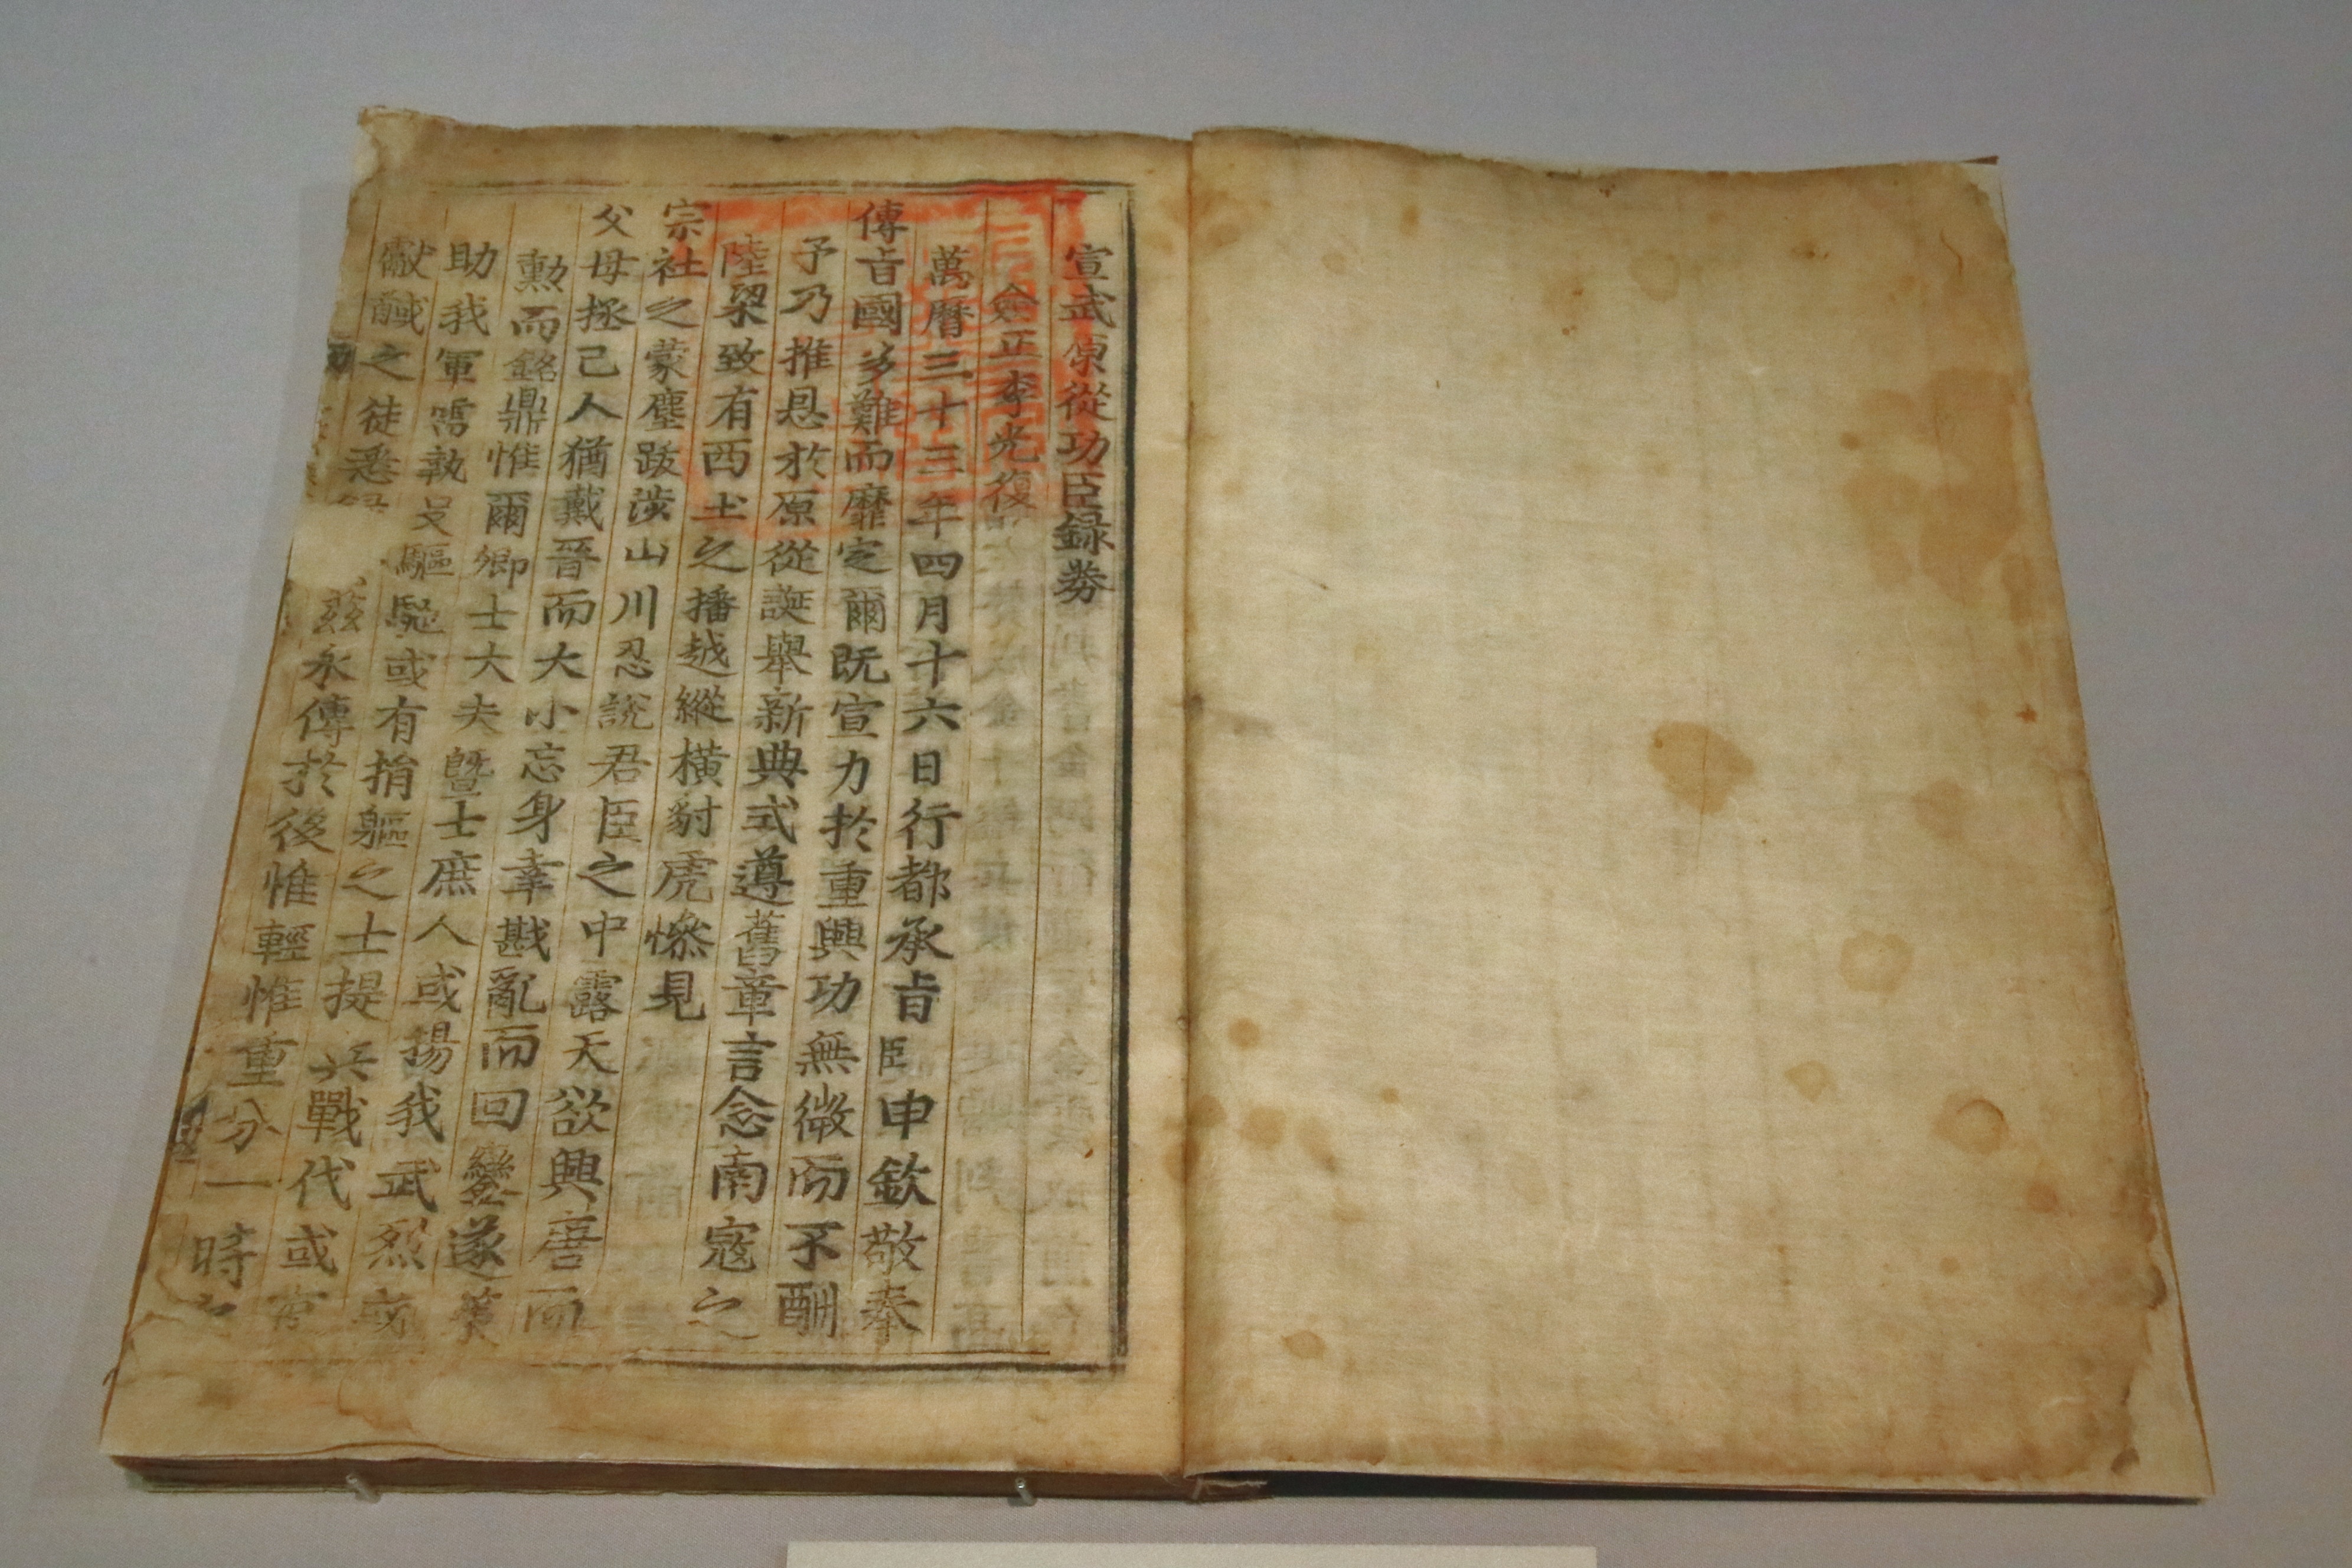 宣武原從功臣錄券
僉正李光復
萬曆三十三年四月十六日行都承旨臣申欽敬奉
傳旨國多難而靡定爾旣宣力於重興功無微而不酬
予乃推恩於原從誕舉新典式遵舊章言念南寇之
陸梁致有西土之播越縱橫豺虎慘見
宗社之蒙塵跋涉山川忍說君臣之中露天欲興唐而
父母拯己人猶戴晉而大小忘身幸戡亂而回鑾遂
勳而銘鼎惟爾卿士大夫曁士庶人或揚我武烈
助我軍需執殳驅馳或有捐軀之士提兵戰伐或
獻馘之徒悉
玆永傳於後惟輕惟重分一時